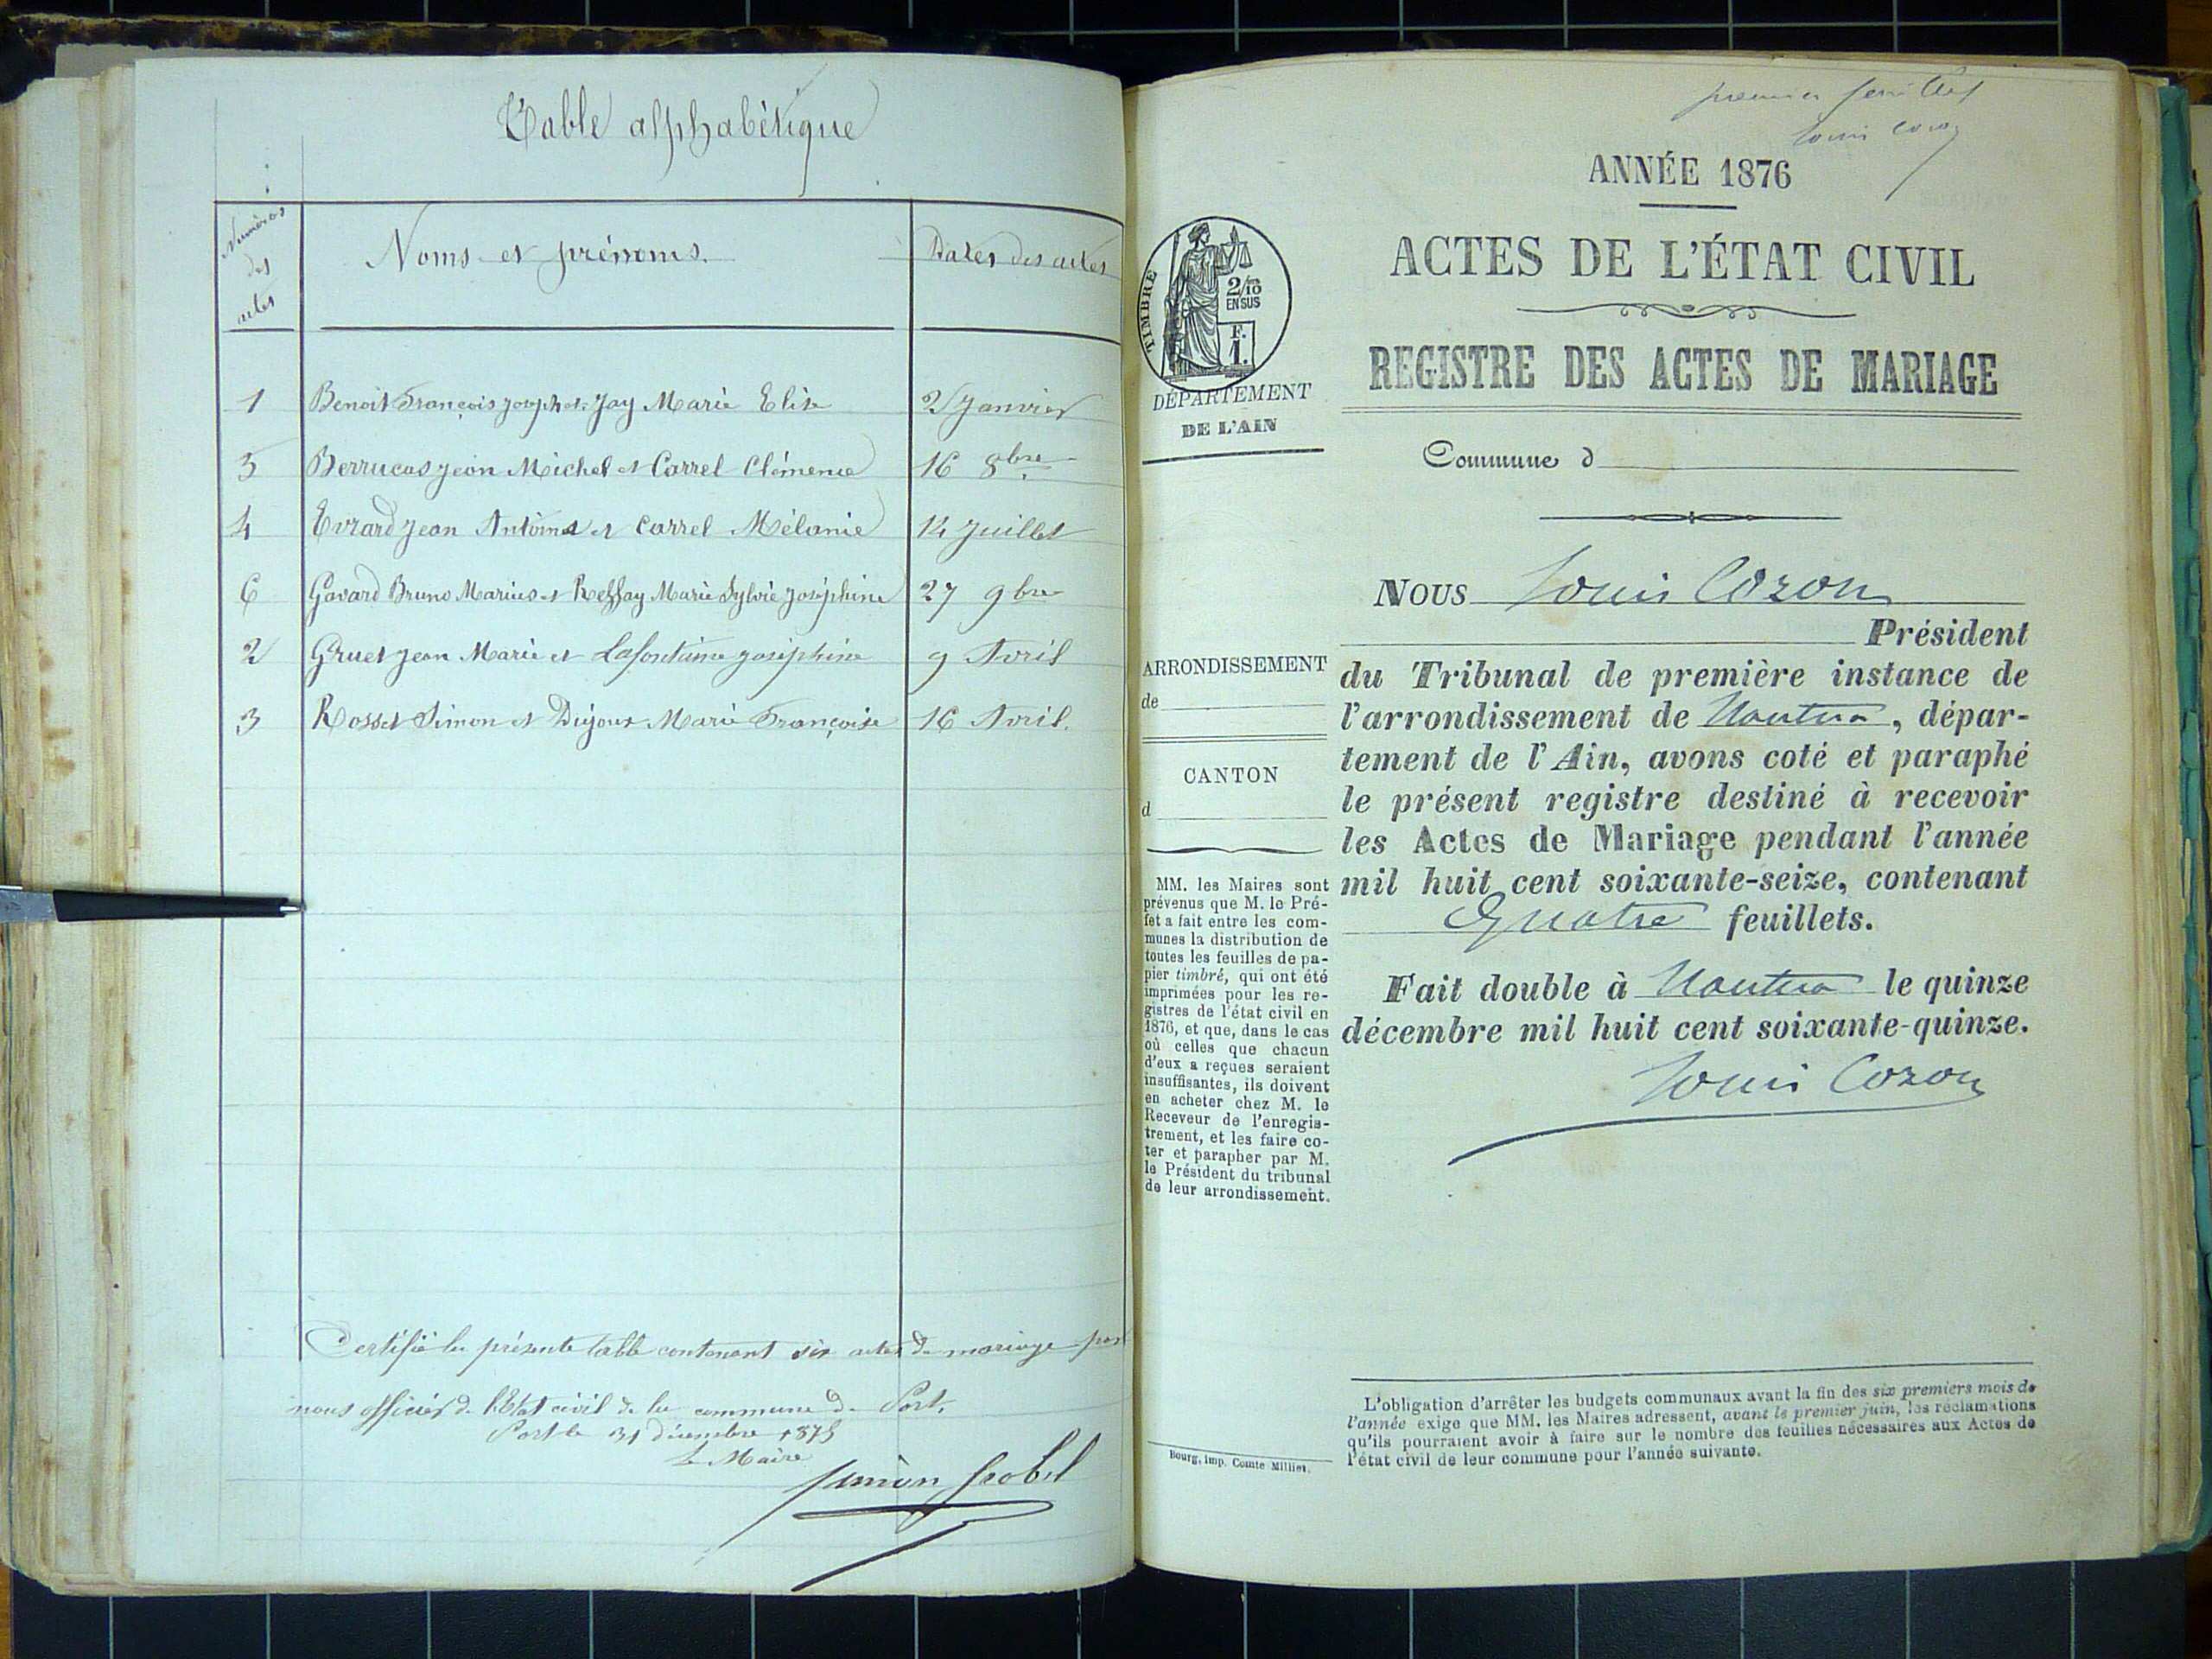 Table alphabétique
Numéros des actes
Noms et prénoms.
Dates des actes
1 Benoit François Joseph et Jay Marie Elise 2 Janvier
5 Berrucas Jean Michel et Carrel Clémence 16 8bre
4 Evrard Jean Antoine et Carrel Mélanie 14 Juillet
6 Gavard Bruno Marius et Reffay Marie Sylvie Joséphine 27 9bre
2 Gruet Jean Marie et Lafontaine Joséphine 9 Avril
3 Rosset Simon et Dujoux Marie Françoise 16 Avril.
Certifié la présente table contenant six actes de mariage par
nous officier de l'Etat civil de la commune de Port.
Port le 31 décembre 1875
Le Maire
premier feuillet
Louis Cozon
ANNÉE 1876
ACTES DE L'ÉTAT CIVIL
REGISTRE DES ACTES DE MARIAGE
TIMBRE
2/10
EN SUS
F.
1.
DÉPARTEMENT
DE L'AIN
Commune d
ARRONDISSEMENT
de
CANTON
d
MM. les Maires sont
prévenus que M. le Pré-
fet a fait entre les com-
munes la distribution de
toutes les feuilles de pa-
pier timbré, qui ont été
imprimées pour les re-
gistres de l'état civil en
1876, et que, dans le cas
où celles que chacun
d'eux a reçues seraient
insuffisantes, ils doivent
en acheter chez M. le
Receveur de l'enregis-
trement, et les faire co-
ter et parapher par M.
le Président du tribunal
de leur arrondissement.
NOUS Louis Cozon
Président
du Tribunal de première instance de
l'arrondissement de Nantua, dépar-
tement de l'Ain, avons coté et paraphé
le présent registre destiné à recevoir
les Actes de Mariage pendant l'année
mil huit cent soixante-seize, contenant
Quatre feuillets.
Fait double à Nantua le quinze
décembre mil huit cent soixante-quinze.
Louis Cozon
L'obligation d'arrêter les budgets communaux avant la fin des six premiers mois de
l'année exige que MM. les Maires adressent, avant le premier juin, les réclamations
qu'ils pourraient avoir à faire sur le nombre des feuilles nécessaires aux Actes de
l'état civil de leur commune pour l'année suivante.
Bourg, imp. Comte Milliet.